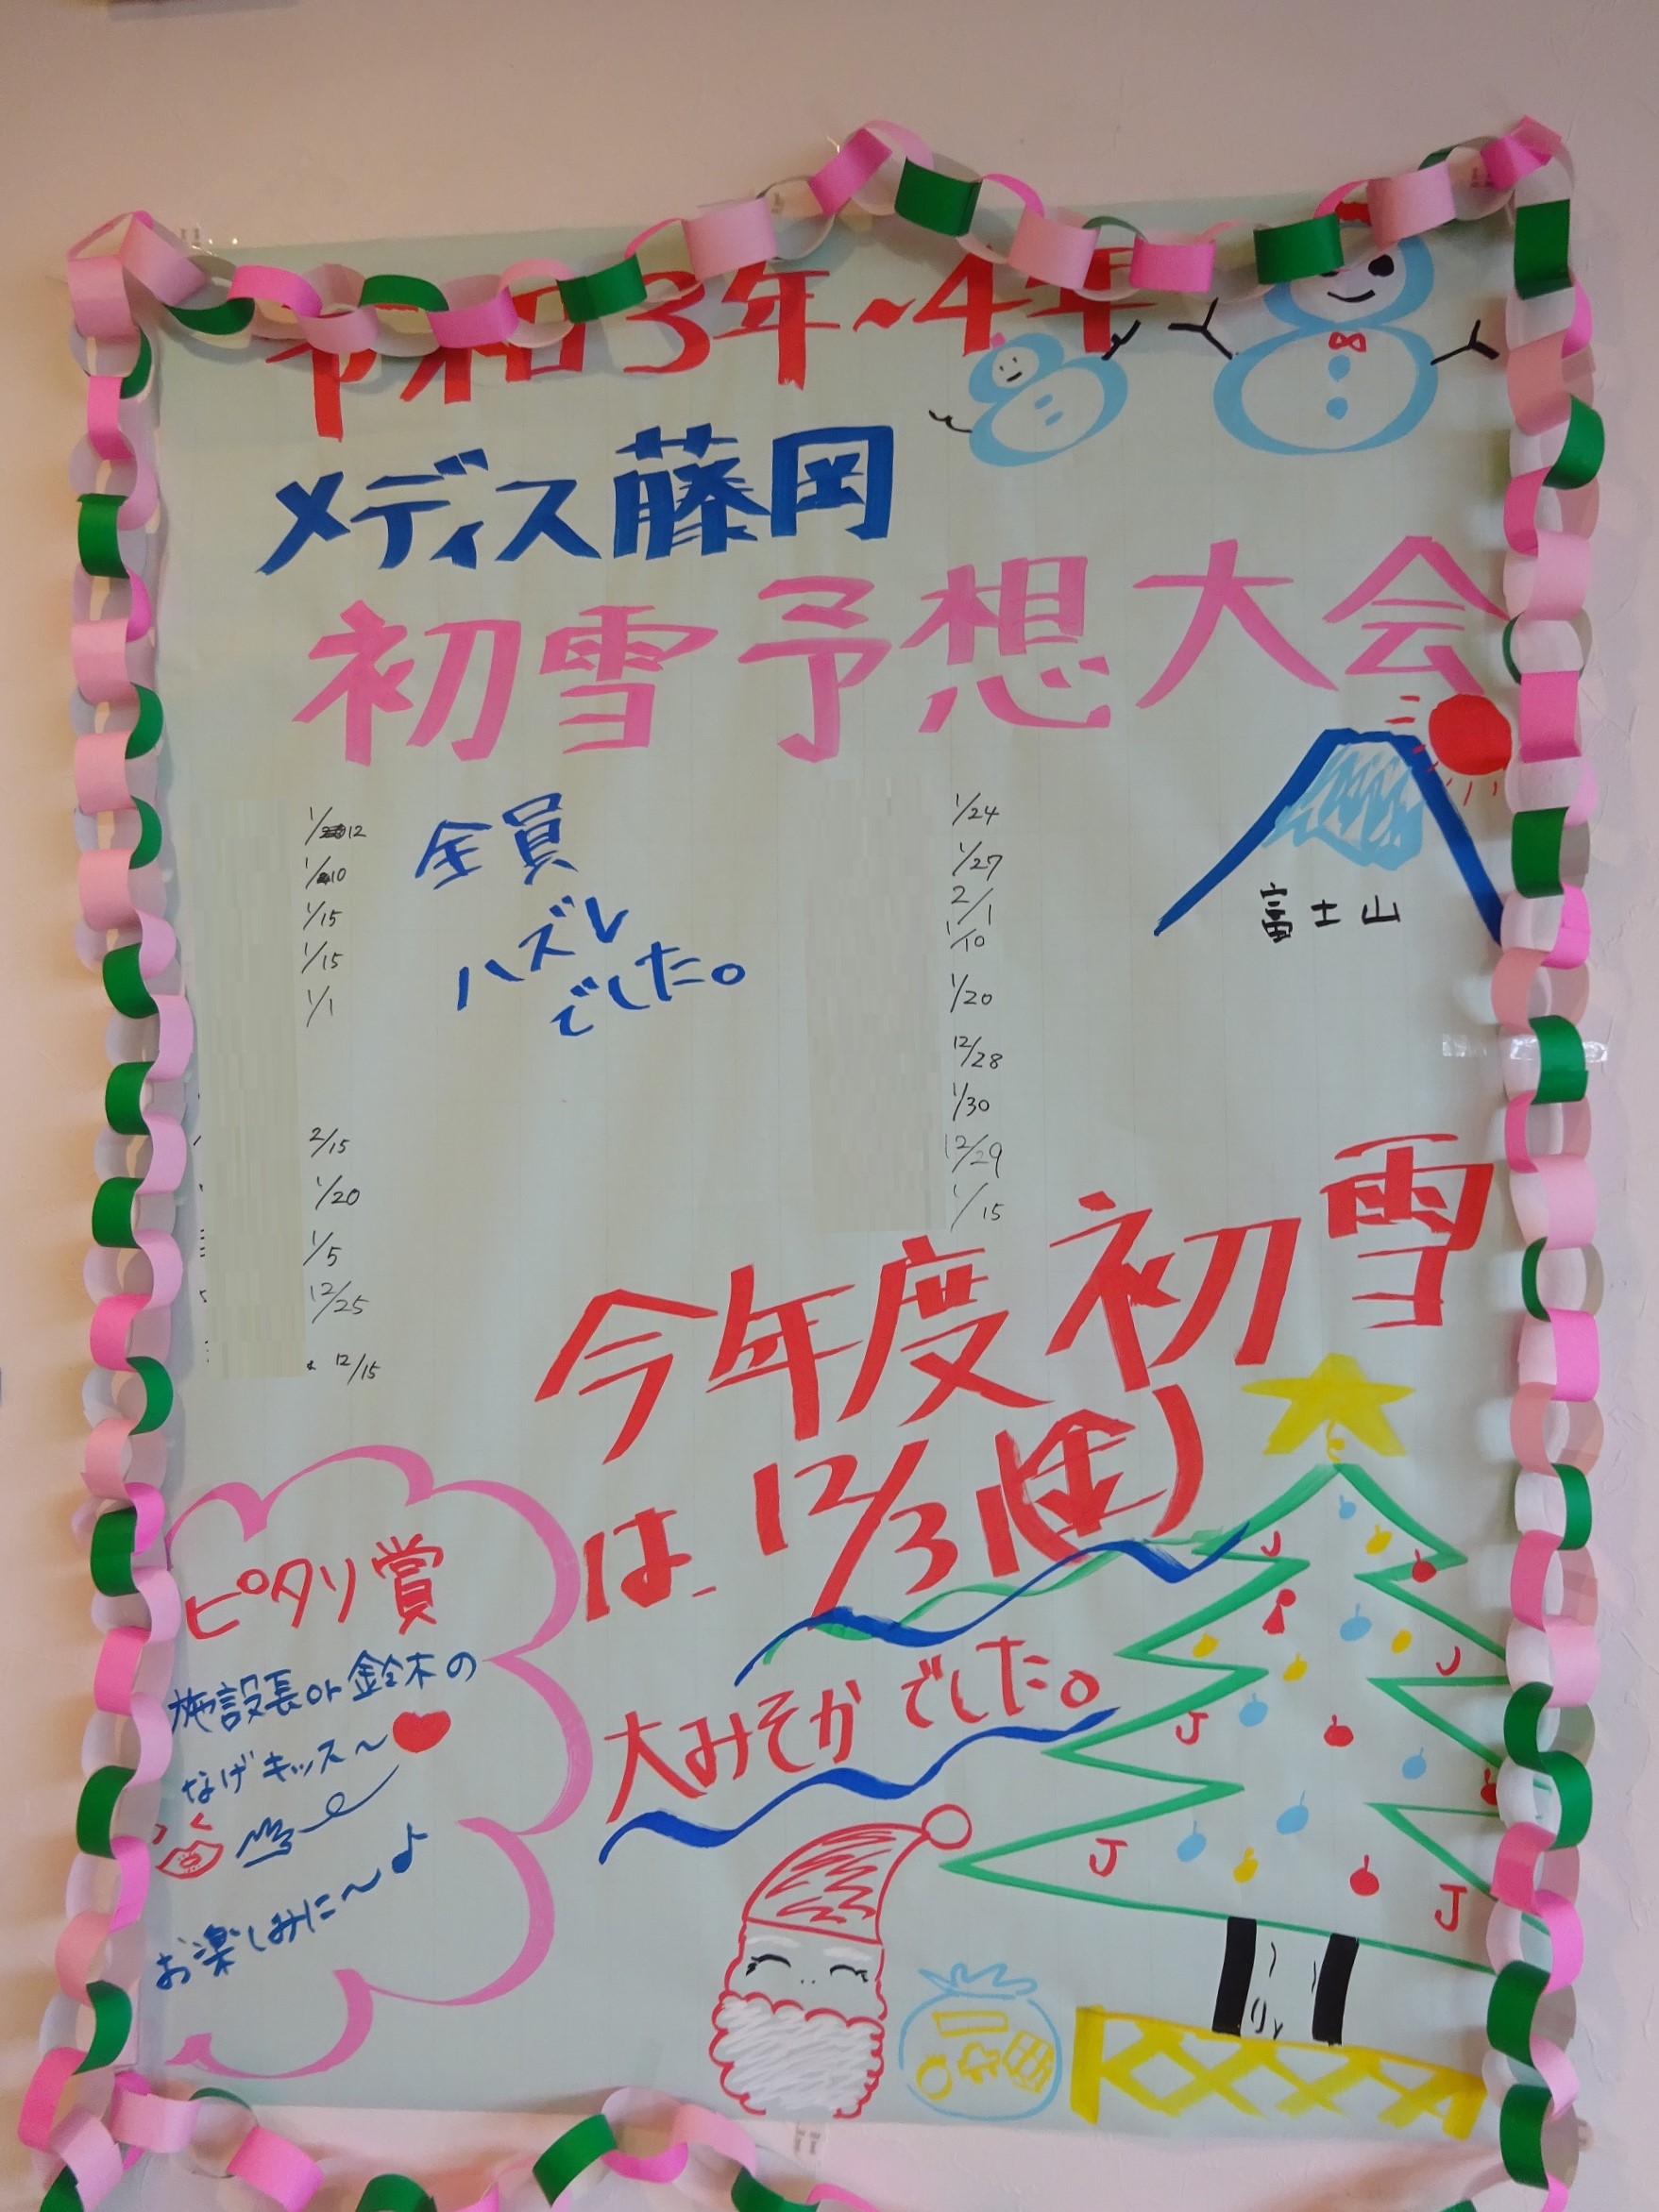 令和3年~4年
メディス藤岡
初雪予想大会
富士山
1/12
1/10
1/15
1/15
1/1
2/15
1/20
1/5
12/25
12/15
全員
ハズレ
でした。
1/24
1/27
2/1
1/10
1/20
12/28
1/30
12/29
1/15
今年度初雪
は 12/31(金)
大みそかでした。
ピタリ賞
施設長or鈴木の
なげキッス~
お楽しみに~♪
J
J
J
J
J